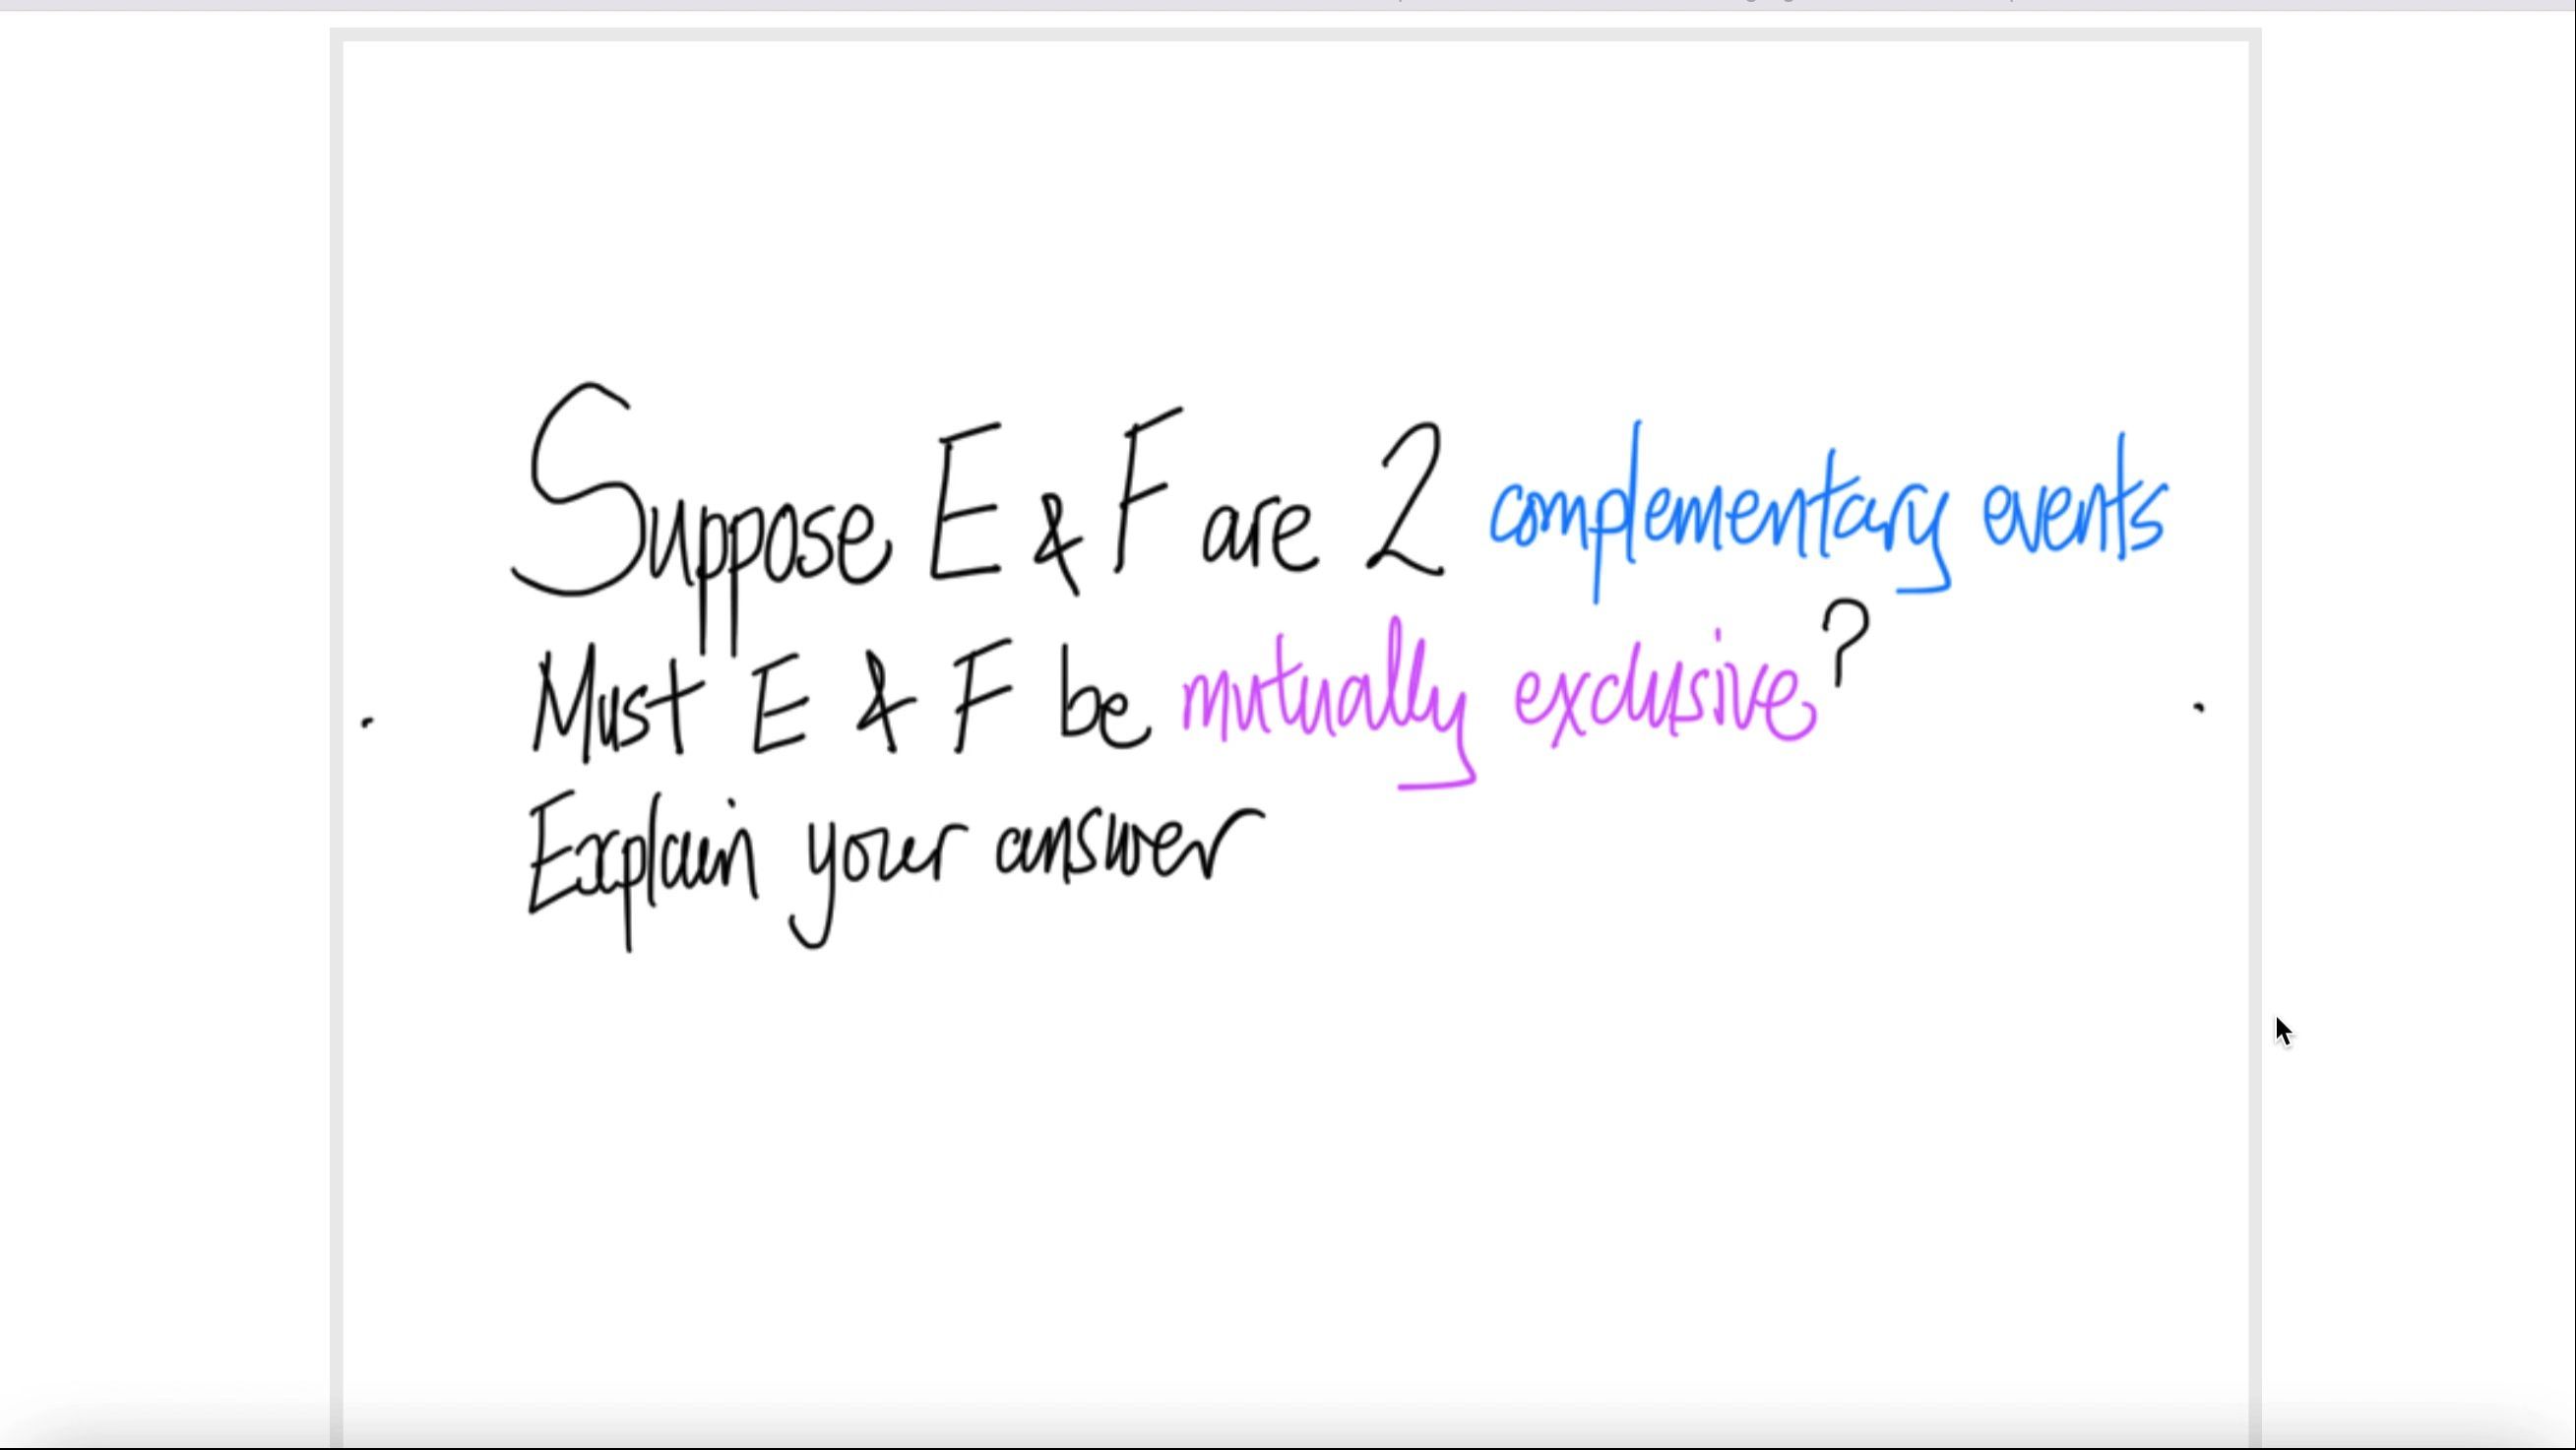 Suppose E & F are 2 complementary events
Must E & F be mutually exclusive?
Explain your answer